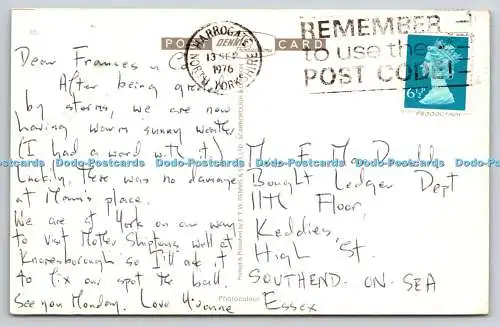 POST DENNIS CARD
HARROGATE
13 SEP
1976
NORTH YORKSHIRE
REMEMBER
to use the
POST CODE!
6½P
Dear Frances &
After being greeted
by storms, we are now
having warm sunny weather
(I had a word with it)
Luckily, there was no damage
at Mum's place.
We are at York on our way
to visit Mother Shiptons well at
Knaresborough so I'll ask it
to fix our spot the ball.
See you Monday. Love Yvonne
Printed & Published by E.T.W. Dennis & Sons Ltd. Scarborough &
Photocolour
Bought Ledger Dept
11th Floor
Keddies
High St.
SOUTHEND. ON. SEA
Essex
Dodo-Postcards Dodo-Postcards Dodo-Postcards Dodo-Postcards Dodo-Postcards Dodo-Postcards